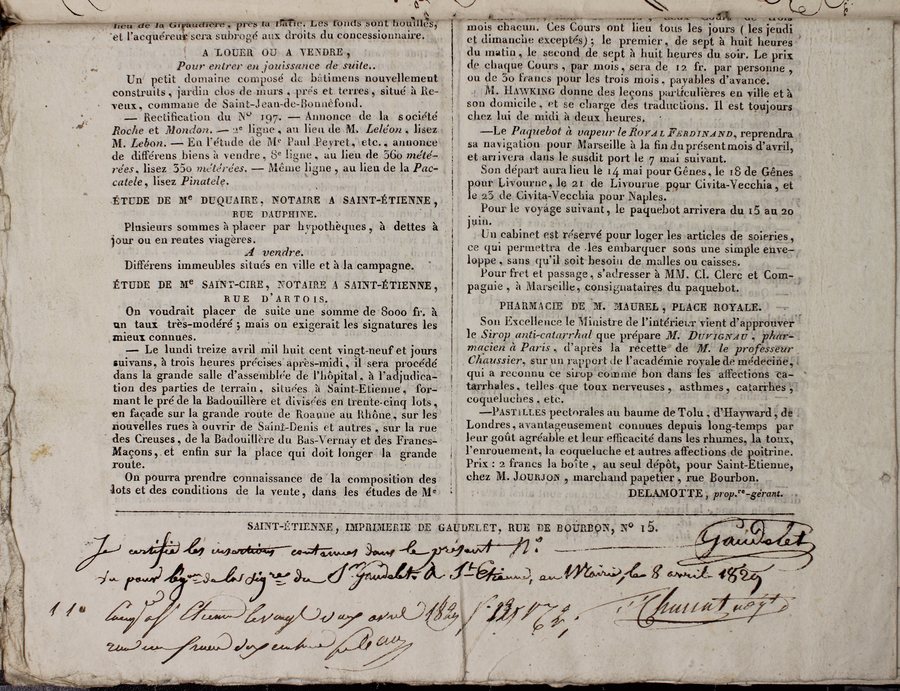 lieu de la Giraudière, près la Italic. Les fonds sont houillés,
et l'acquéreur sera subrogé aux droits du concessionnaire.
A LOUER OU A VENDRE,
Pour entrer en jouissance de suite..
Un petit domaine composé de bâtimens nouvellement
construits, jardin clos de murs, prés et terres, situé à Re-
veux, commune de Saint-Jean-de-Bonnefond.
— Rectification du N° 197. — Annonce de la société
Roche et Mondon. — 2e ligne, au lieu de M. Leléon, lisez
M. Lebon. — En l'étude de Me Paul Peyret, etc., annonce
de différens biens à vendre, 8e ligne, au lieu de 360 mété-
rées, lisez 350 métérées. — Même ligne, au lieu de la Pac-
catele, lisez Pinatele.
ÉTUDE DE Me DUQUAIRE, NOTAIRE A SAINT-ÉTIENNE,
RUE DAUPHINE.
Plusieurs sommes à placer par hypothèques, à dettes à
jour ou en rentes viagères.
A vendre.
Différens immeubles situés en ville et à la campagne.
ÉTUDE DE Me SAINT-CIRE, NOTAIRE A SAINT-ÉTIENNE,
RUE D'ARTOIS.
On voudrait placer de suite une somme de 8000 fr. à
un taux très-modéré; mais on exigerait les signatures les
mieux connues.
— Le lundi treize avril mil huit cent vingt-neuf et jours
suivans, à trois heures précises après-midi, il sera procédé
dans la grande salle d'assemblée de l'hôpital, à l'adjudica-
tion des parties de terrain, situées à Saint-Etienne, for-
mant le pré de la Badouillère et divisées en trente-cinq lots,
en façade sur la grande route de Roanne au Rhône, sur les
nouvelles rues à ouvrir de Saint-Denis et autres, sur la rue
des Creuses, de la Badouillère du Bas-Vernay et des Francs-
Maçons, et enfin sur la place qui doit longer la grande
route.
On pourra prendre connaissance de la composition des
lots et des conditions de la vente, dans les études de Me
mois chacun. Ces Cours ont lieu tous les jours (les jeudi
et dimanche exceptés); le premier, de sept à huit heures
du matin, le second de sept à huit heures du soir. Le prix
de chaque Cours, par mois, sera de 12 fr. par personne,
ou de 30 francs pour les trois mois, payables d'avance.
M. HAWKING donne des leçons particulières en ville et à
son domicile, et se charge des traductions. Il est toujours
chez lui de midi à deux heures.
—Le Paquebot à vapeur le ROYAL FERDINAND, reprendra
sa navigation pour Marseille à la fin du présent mois d'avril,
et arrivera dans le susdit port le 7 mai suivant.
Son départ aura lieu le 14 mai pour Gênes, le 18 de Gênes
pour Livourne, le 21 de Livourne pour Civita-Vecchia, et
le 23 de Civita-Vecchia pour Naples.
Pour le voyage suivant, le paquebot arrivera du 15 au 20
juin.
Un cabinet est réservé pour loger les articles de soieries,
ce qui permettra de les embarquer sous une simple enve-
loppe, sans qu'il soit besoin de malles ou caisses.
Pour fret et passage, s'adresser à MM. Cl. Clerc et Com-
pagnie, à Marseille, consignataires du paquebot.
PHARMACIE DE M. MAUREL, PLACE ROYALE.
Son Excellence le Ministre de l'intérieur vient d'approuver
le Sirop anti-catarrhal que prépare M. DUVIGNAU, phar-
macien à Paris, d'après la recette de M. le professeur
Chaussier, sur un rapport de l'académie royale de médecine,
qui a reconnu ce sirop comme bon dans les affections ca-
tarrhales, telles que toux nerveuses, asthmes, catarrhes,
coqueluches, etc.
—PASTILLES pectorales au baume de Tolu, d'Hayward, de
Londres, avantageusement connues depuis long-temps par
leur goût agréable et leur efficacité dans les rhumes, la toux,
l'enrouement, la coqueluche et autres affections de poitrine.
Prix: 2 francs la boîte, au seul dépôt, pour Saint-Etienne,
chez M. JOURJON, marchand papetier, rue Bourbon.
DELAMOTTE, prop.re-gérant.
SAINT-ÉTIENNE, IMPRIMERIE DE GAUDELET, RUE DE BOURBON, N° 15.
Je certifie les insertions contenues dans le présent N°. Gaudelet
Vu pour légon de la sigre du Sr Gaudelet. A St Etienne, en Mairie, le 8 avril 1829
110 Etienne le vingt deux avril 1829